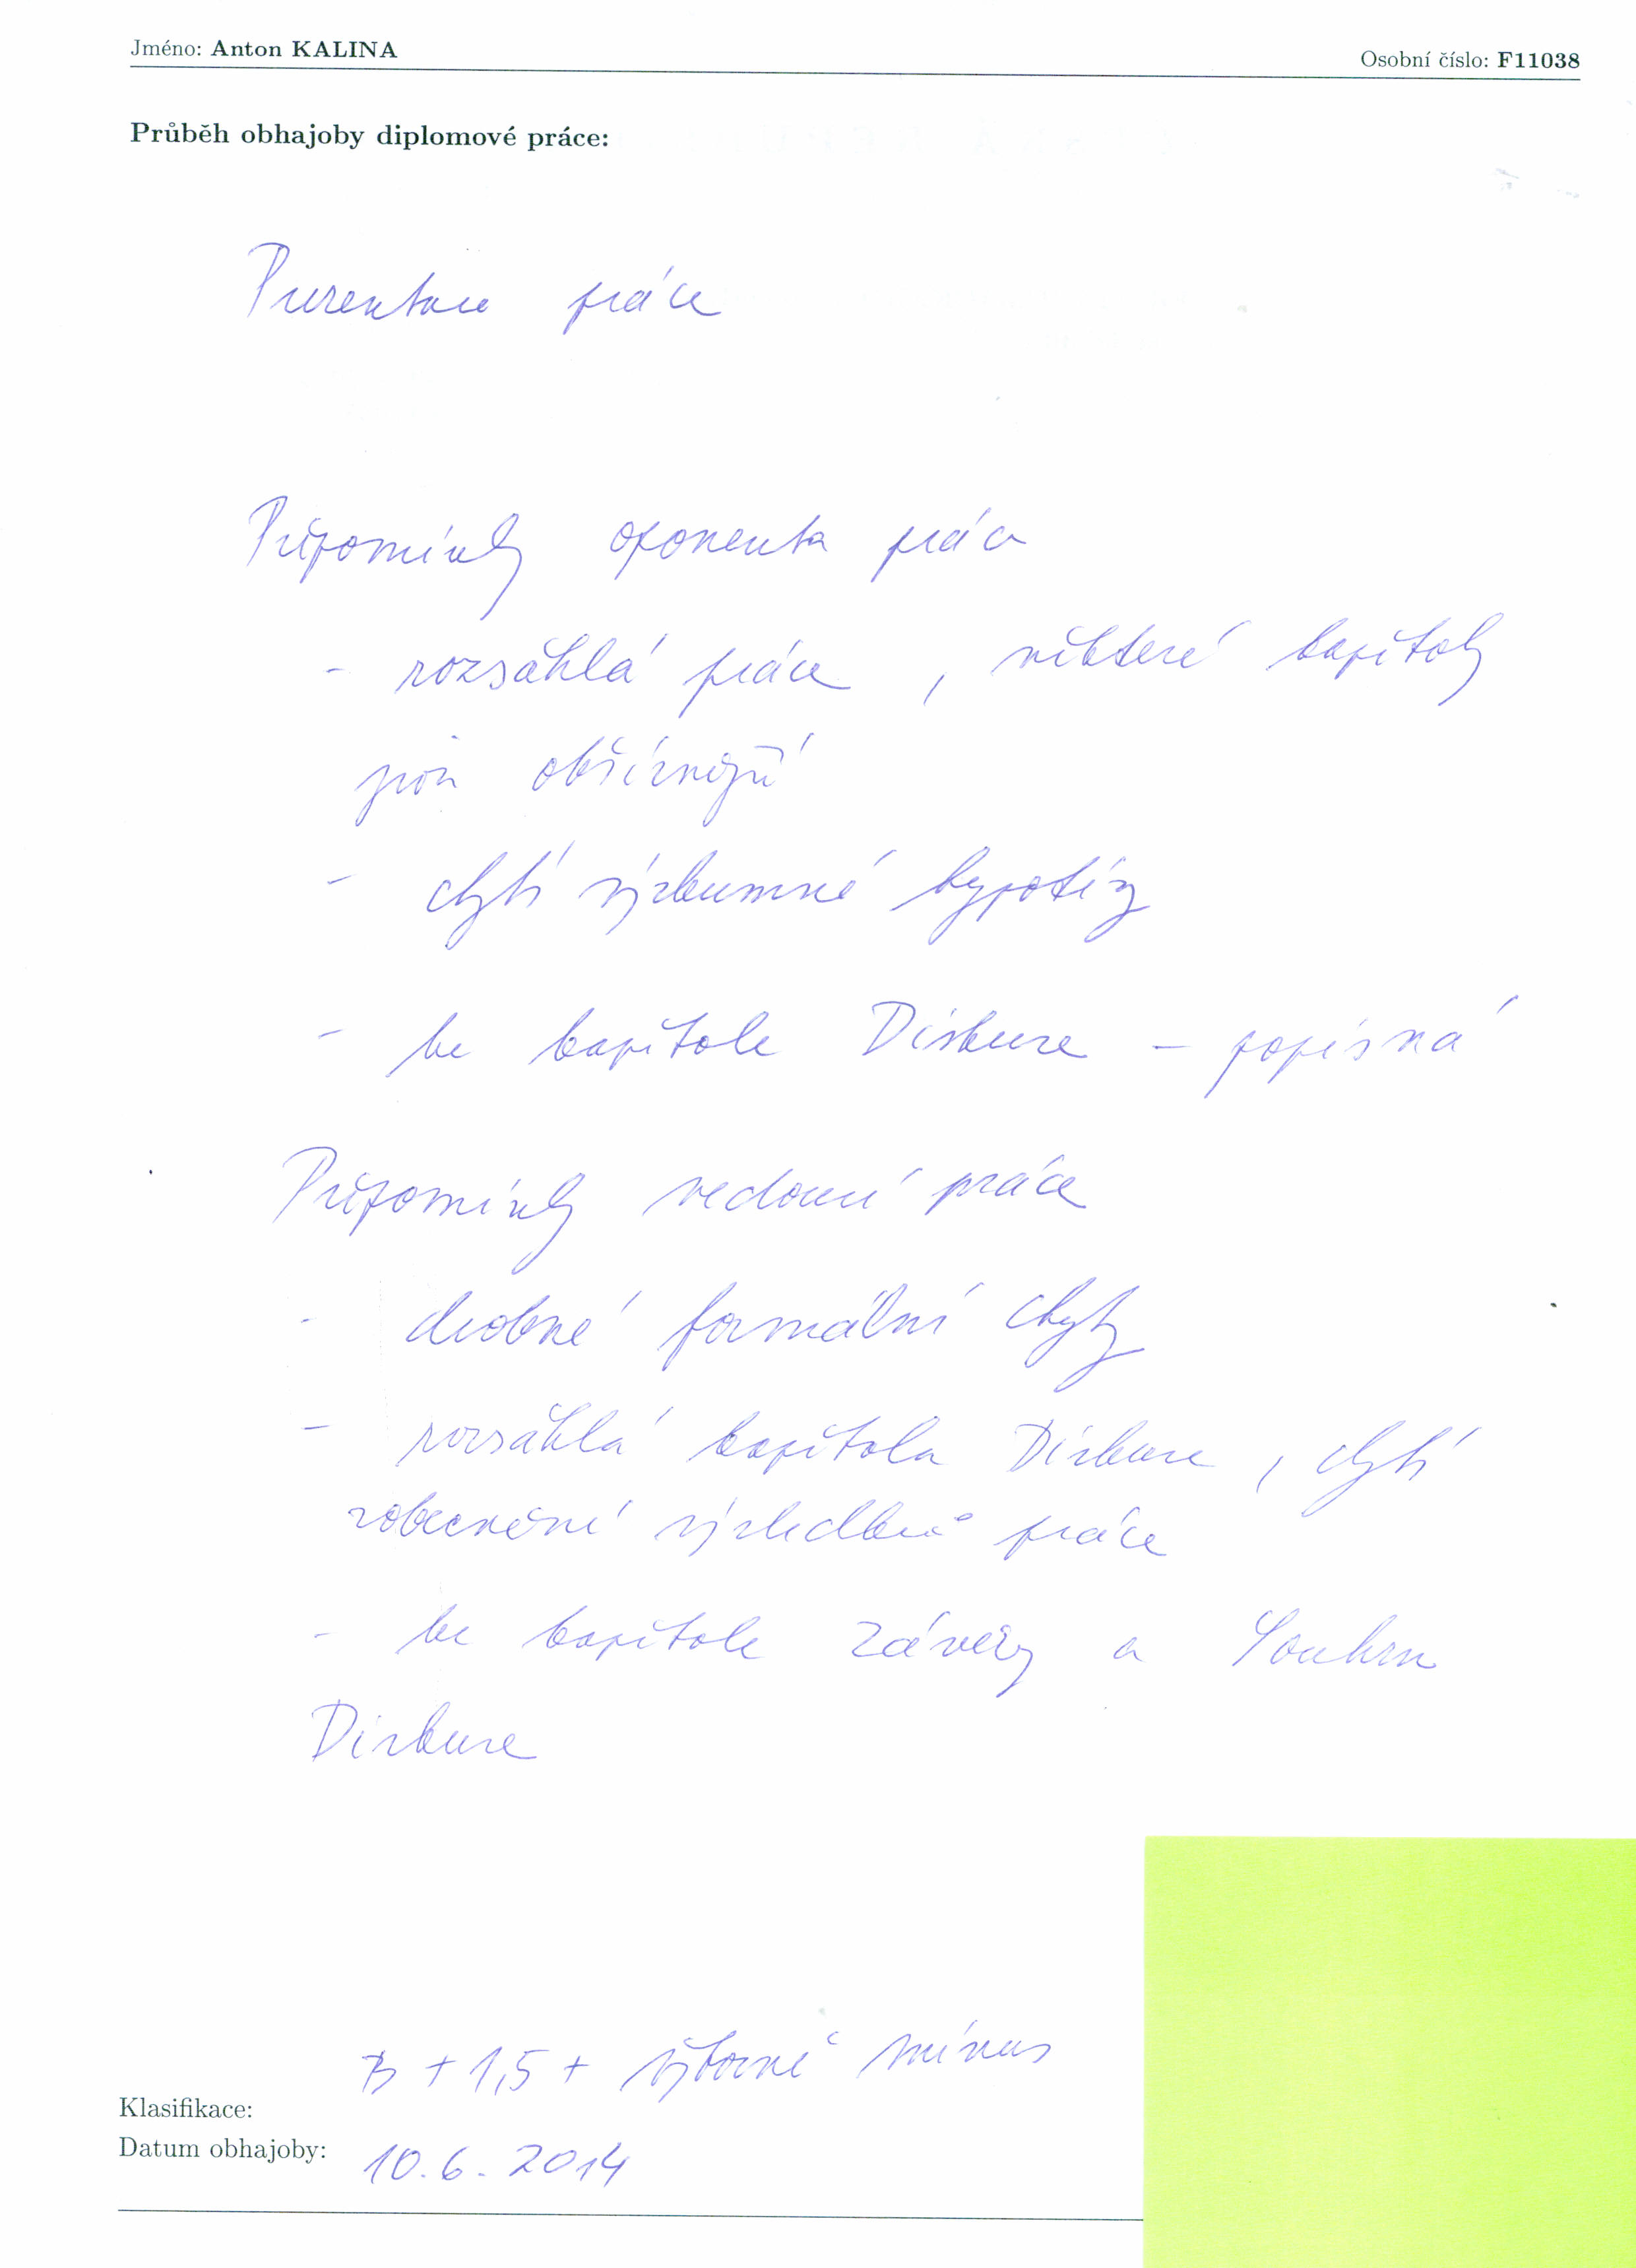 Jméno: Anton KALINA
Osobní číslo: F11038
Průběh obhajoby diplomové práce:
Prezentace práce
Připomínky oponenta práce
- rozsáhlá práce, některé kapitoly
jsou obšírnější
- chybí výzkumné hypotézy
- ke kapitole Diskuze - popisná
Připomínky vedoucí práce
- drobné formální chyby
- rozsáhlá kapitola Diskuze, chybí
zobecnění výsledků práce
- ke kapitole Závěry a Souhrn
Diskuze
B + 1,5 + výborně mínus
Klasifikace:
Datum obhajoby: 10.6.2014